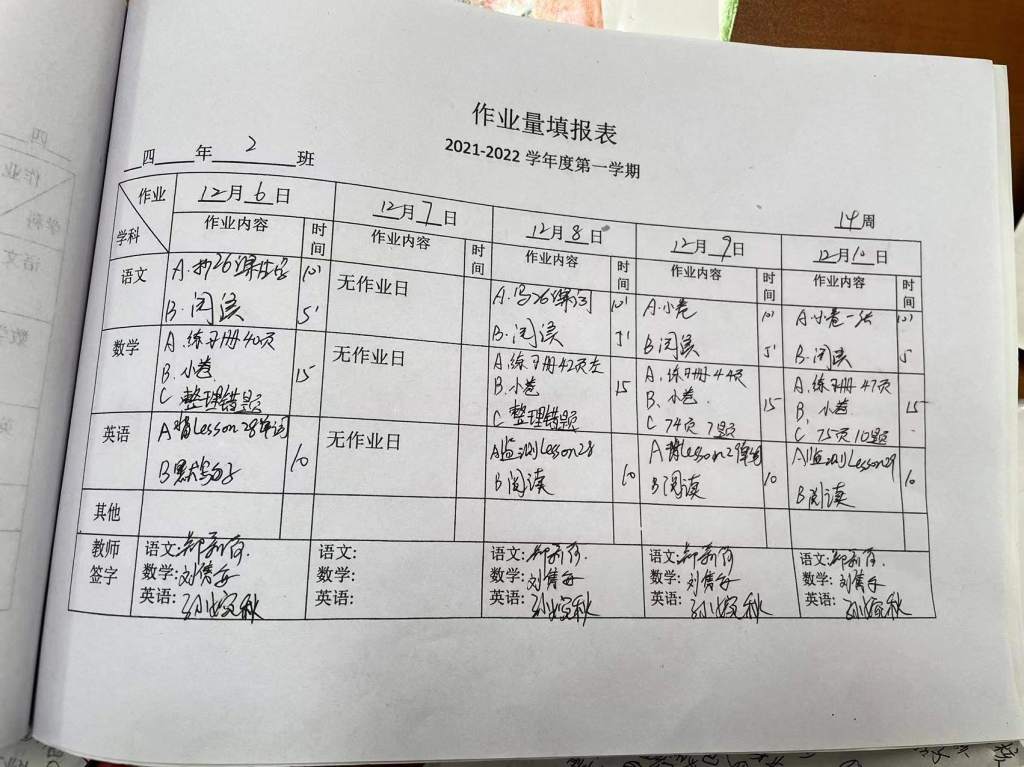 作业量填报表
2021-2022 学年度第一学期
四 年 2 班
14周
作业
学科
12月6日
12月7日
12月8日
12月9日
12月10日
作业内容 时间
作业内容 时间
作业内容 时间
作业内容 时间
作业内容 时间
语文
A.抄26课 10'
B.阅读 5'
无作业日
A.写26课词 10'
B.阅读 5'
A.小卷 10'
B阅读 5'
A.小卷一张 10'
B.阅读 5
数学
A.练习册40页
B.小卷 15
C 整理错题
无作业日
A.练习册42页左
B.小卷 15
C 整理错题
A.练习册44页
B、小卷. 15
C 74页 7题
A.练习册47页
B、小卷 15
C 75页10题
英语
A背Lesson28单词
B默写句子 10
无作业日
A监测Lesson28
B阅读 10
A背Lesson29单词
B阅读 10
A监测Lesson29
B阅读 10
其他
教师
签字
语文:
数学:刘倩
英语:孙婉秋
语文:
数学:
英语:
语文:
数学:刘倩
英语:孙婉秋
语文:
数学:刘倩
英语:孙婉秋
语文:
数学:刘倩
英语:孙婉秋